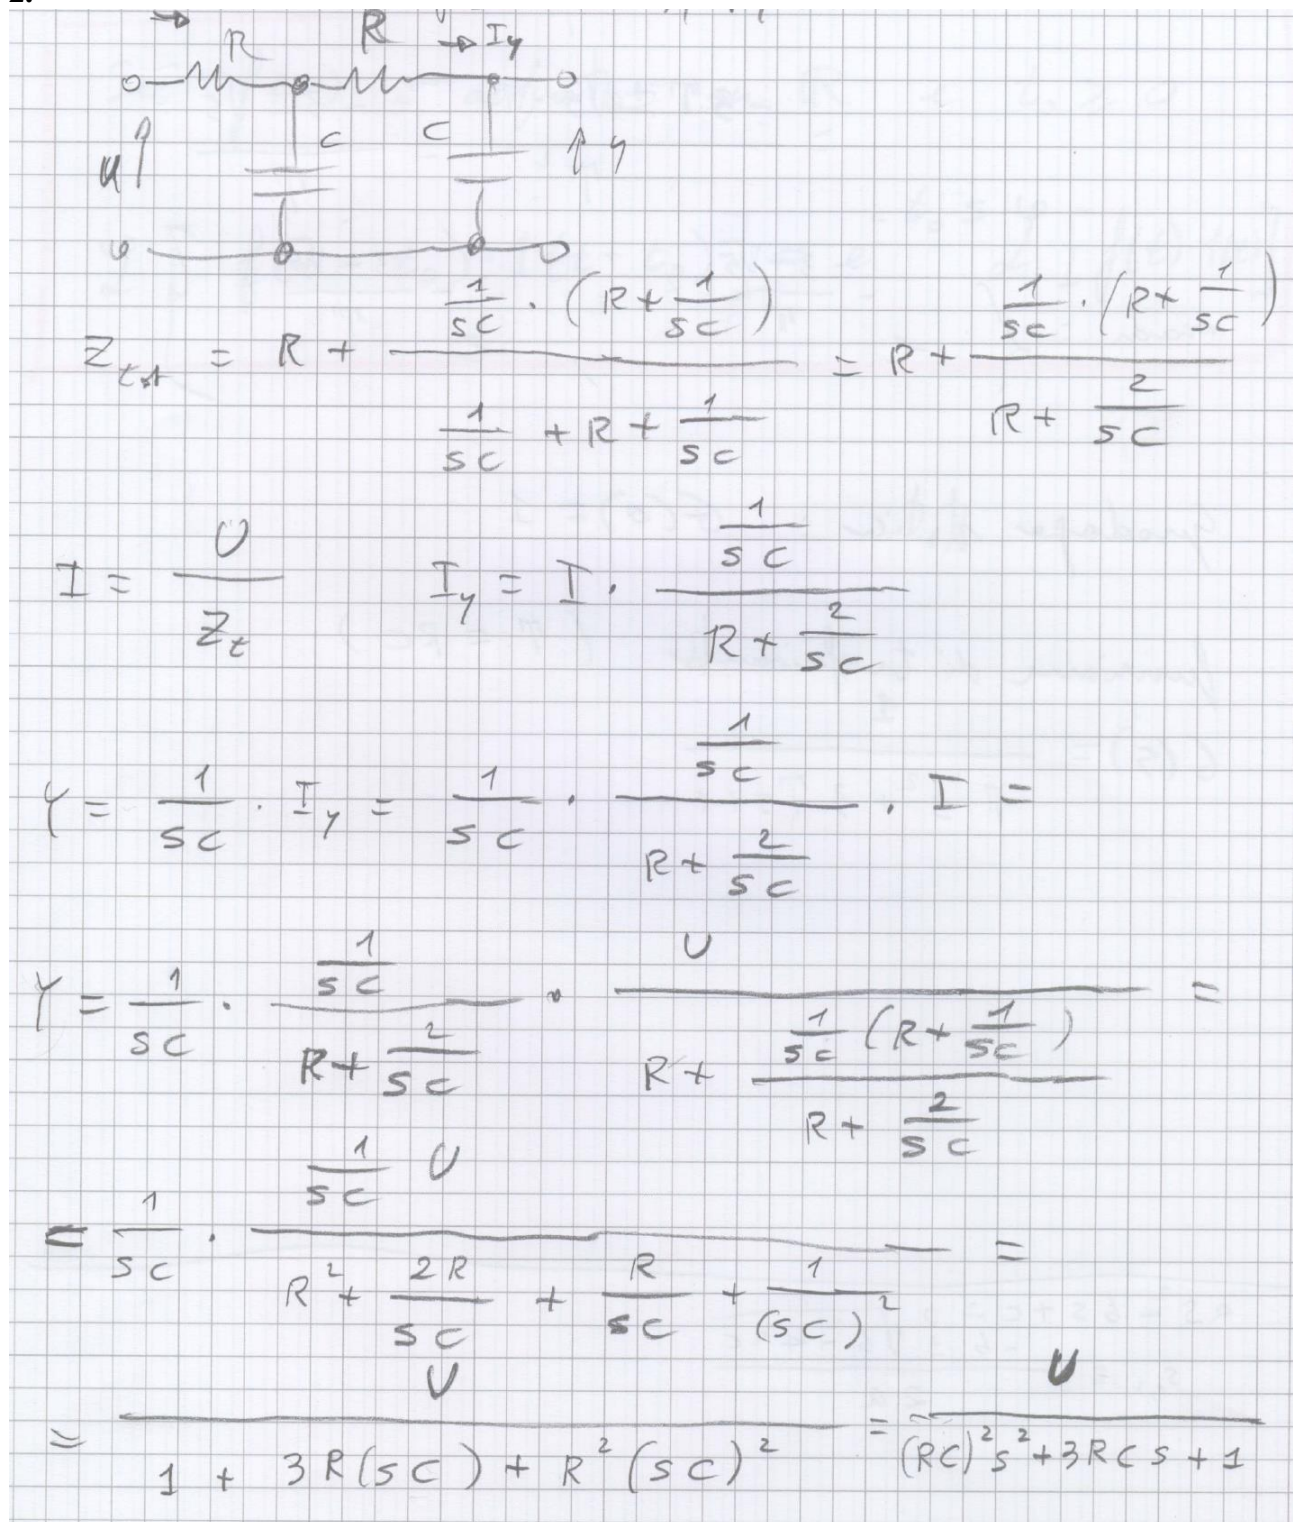 2.
R R → I_y
u C C y
Z_tot = R + (1/sC · (R + 1/sC)) / (1/sC + R + 1/sC) = R + (1/sC · (R + 1/sC)) / (R + 2/sC)
I = U / Z_t I_y = I · (1/sC) / (R + 2/sC)
Y = 1/sC · I_y = 1/sC · (1/sC) / (R + 2/sC) · I =
Y = 1/sC · (1/sC) / (R + 2/sC) · U / (R + (1/sC (R + 1/sC)) / (R + 2/sC)) =
= 1/sC · (1/sC U) / (R² + 2R/sC + R/sC + 1/(sC)²) =
= U / (1 + 3R(sC) + R²(sC)²) = U / ((RC)²s² + 3RCs + 1)